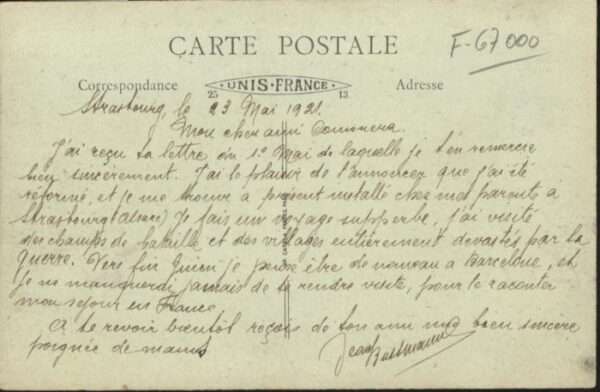 F-67000
CARTE POSTALE
Correspondance
UNIS-FRANCE
25 13
Adresse
Strasbourg, le 23 Mai 1921.
Mon cher ami Comorera.
J'ai reçu ta lettre du 1º Mai de laquelle je t'en remercie
bien sincerement. J'ai le plaisir de t'annoncer que j'ai été
réformé, et je me trouve a présent installé chez mes parents à
Strasbourg (Alsace) Je fais un voyage subsperbe, j'ai visité
des champs de bataille et des villages entièrement devastés par la
guerre. Vers fin Juin je pense être de nouveau a Barcelone, et
je ne manquerai jamais de te rendre visite, pour te raconter
mon sejour en France.
A te revoir bientôt reçois de ton ami une bien sincère
poignée de mains
Jean